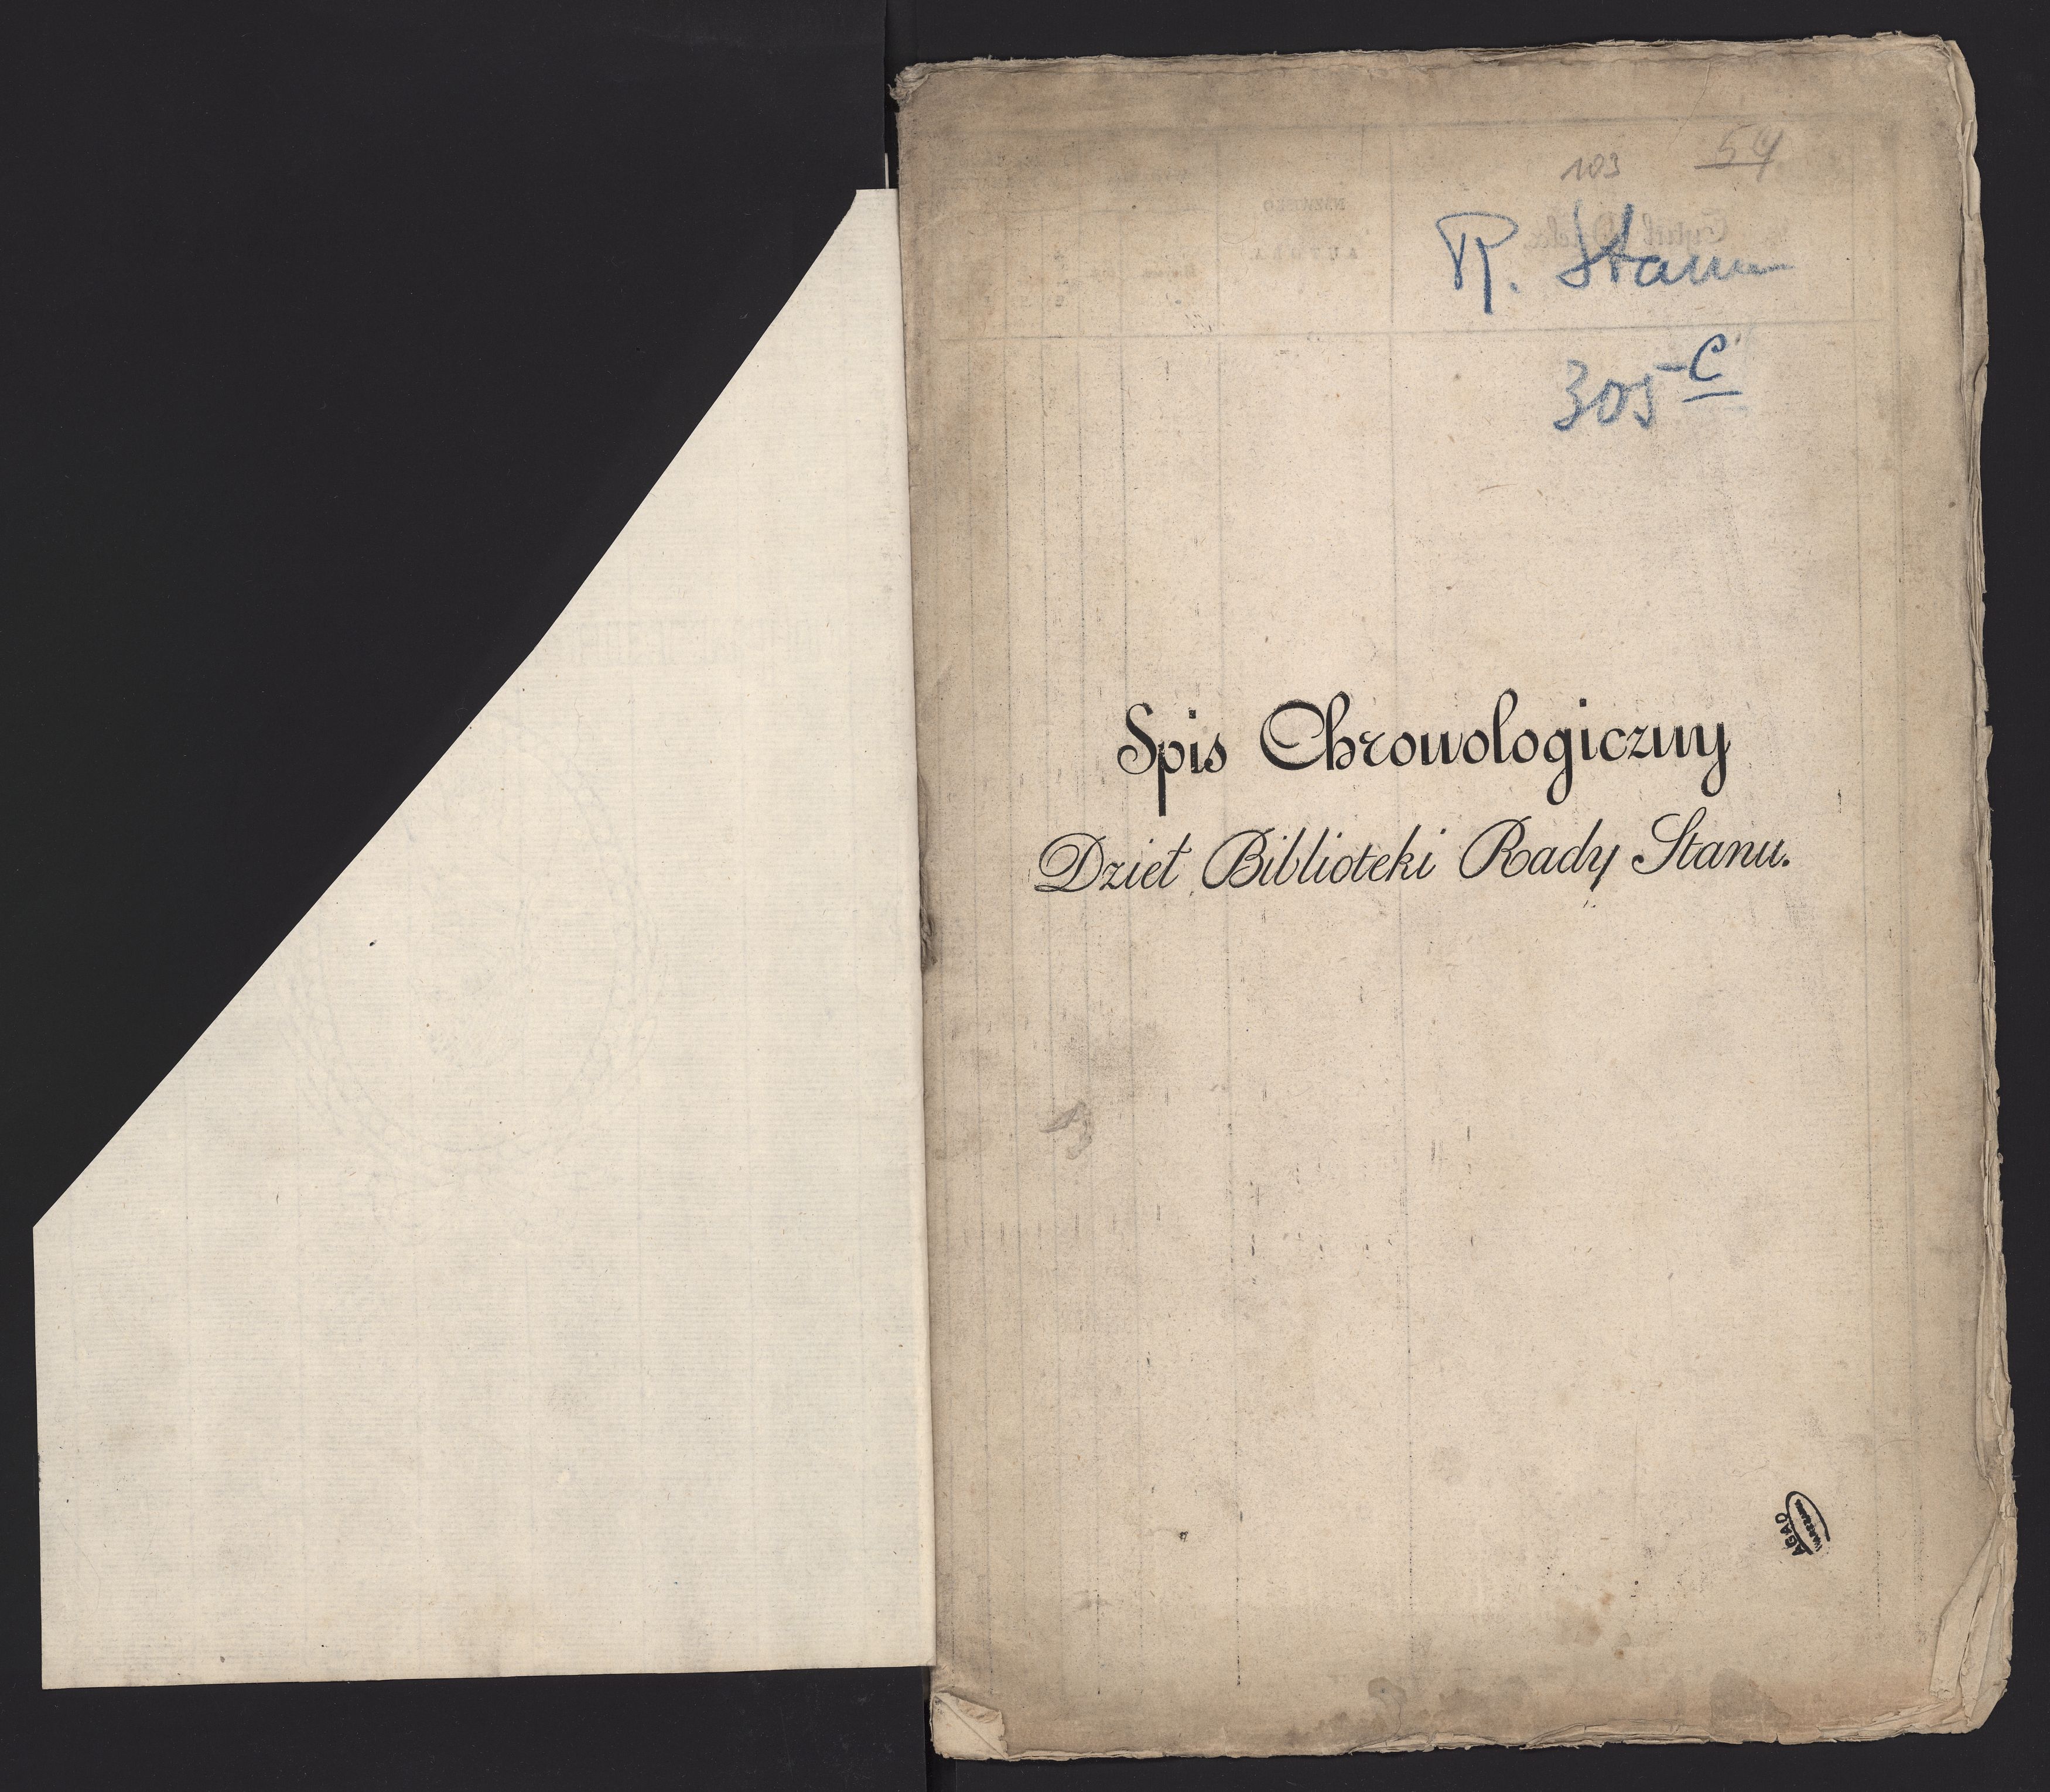 103 54
R. Stanu
305-C
Spis Chronologiczny
Dzieł Biblioteki Rady Stanu.
AGAD
WARSZAWA